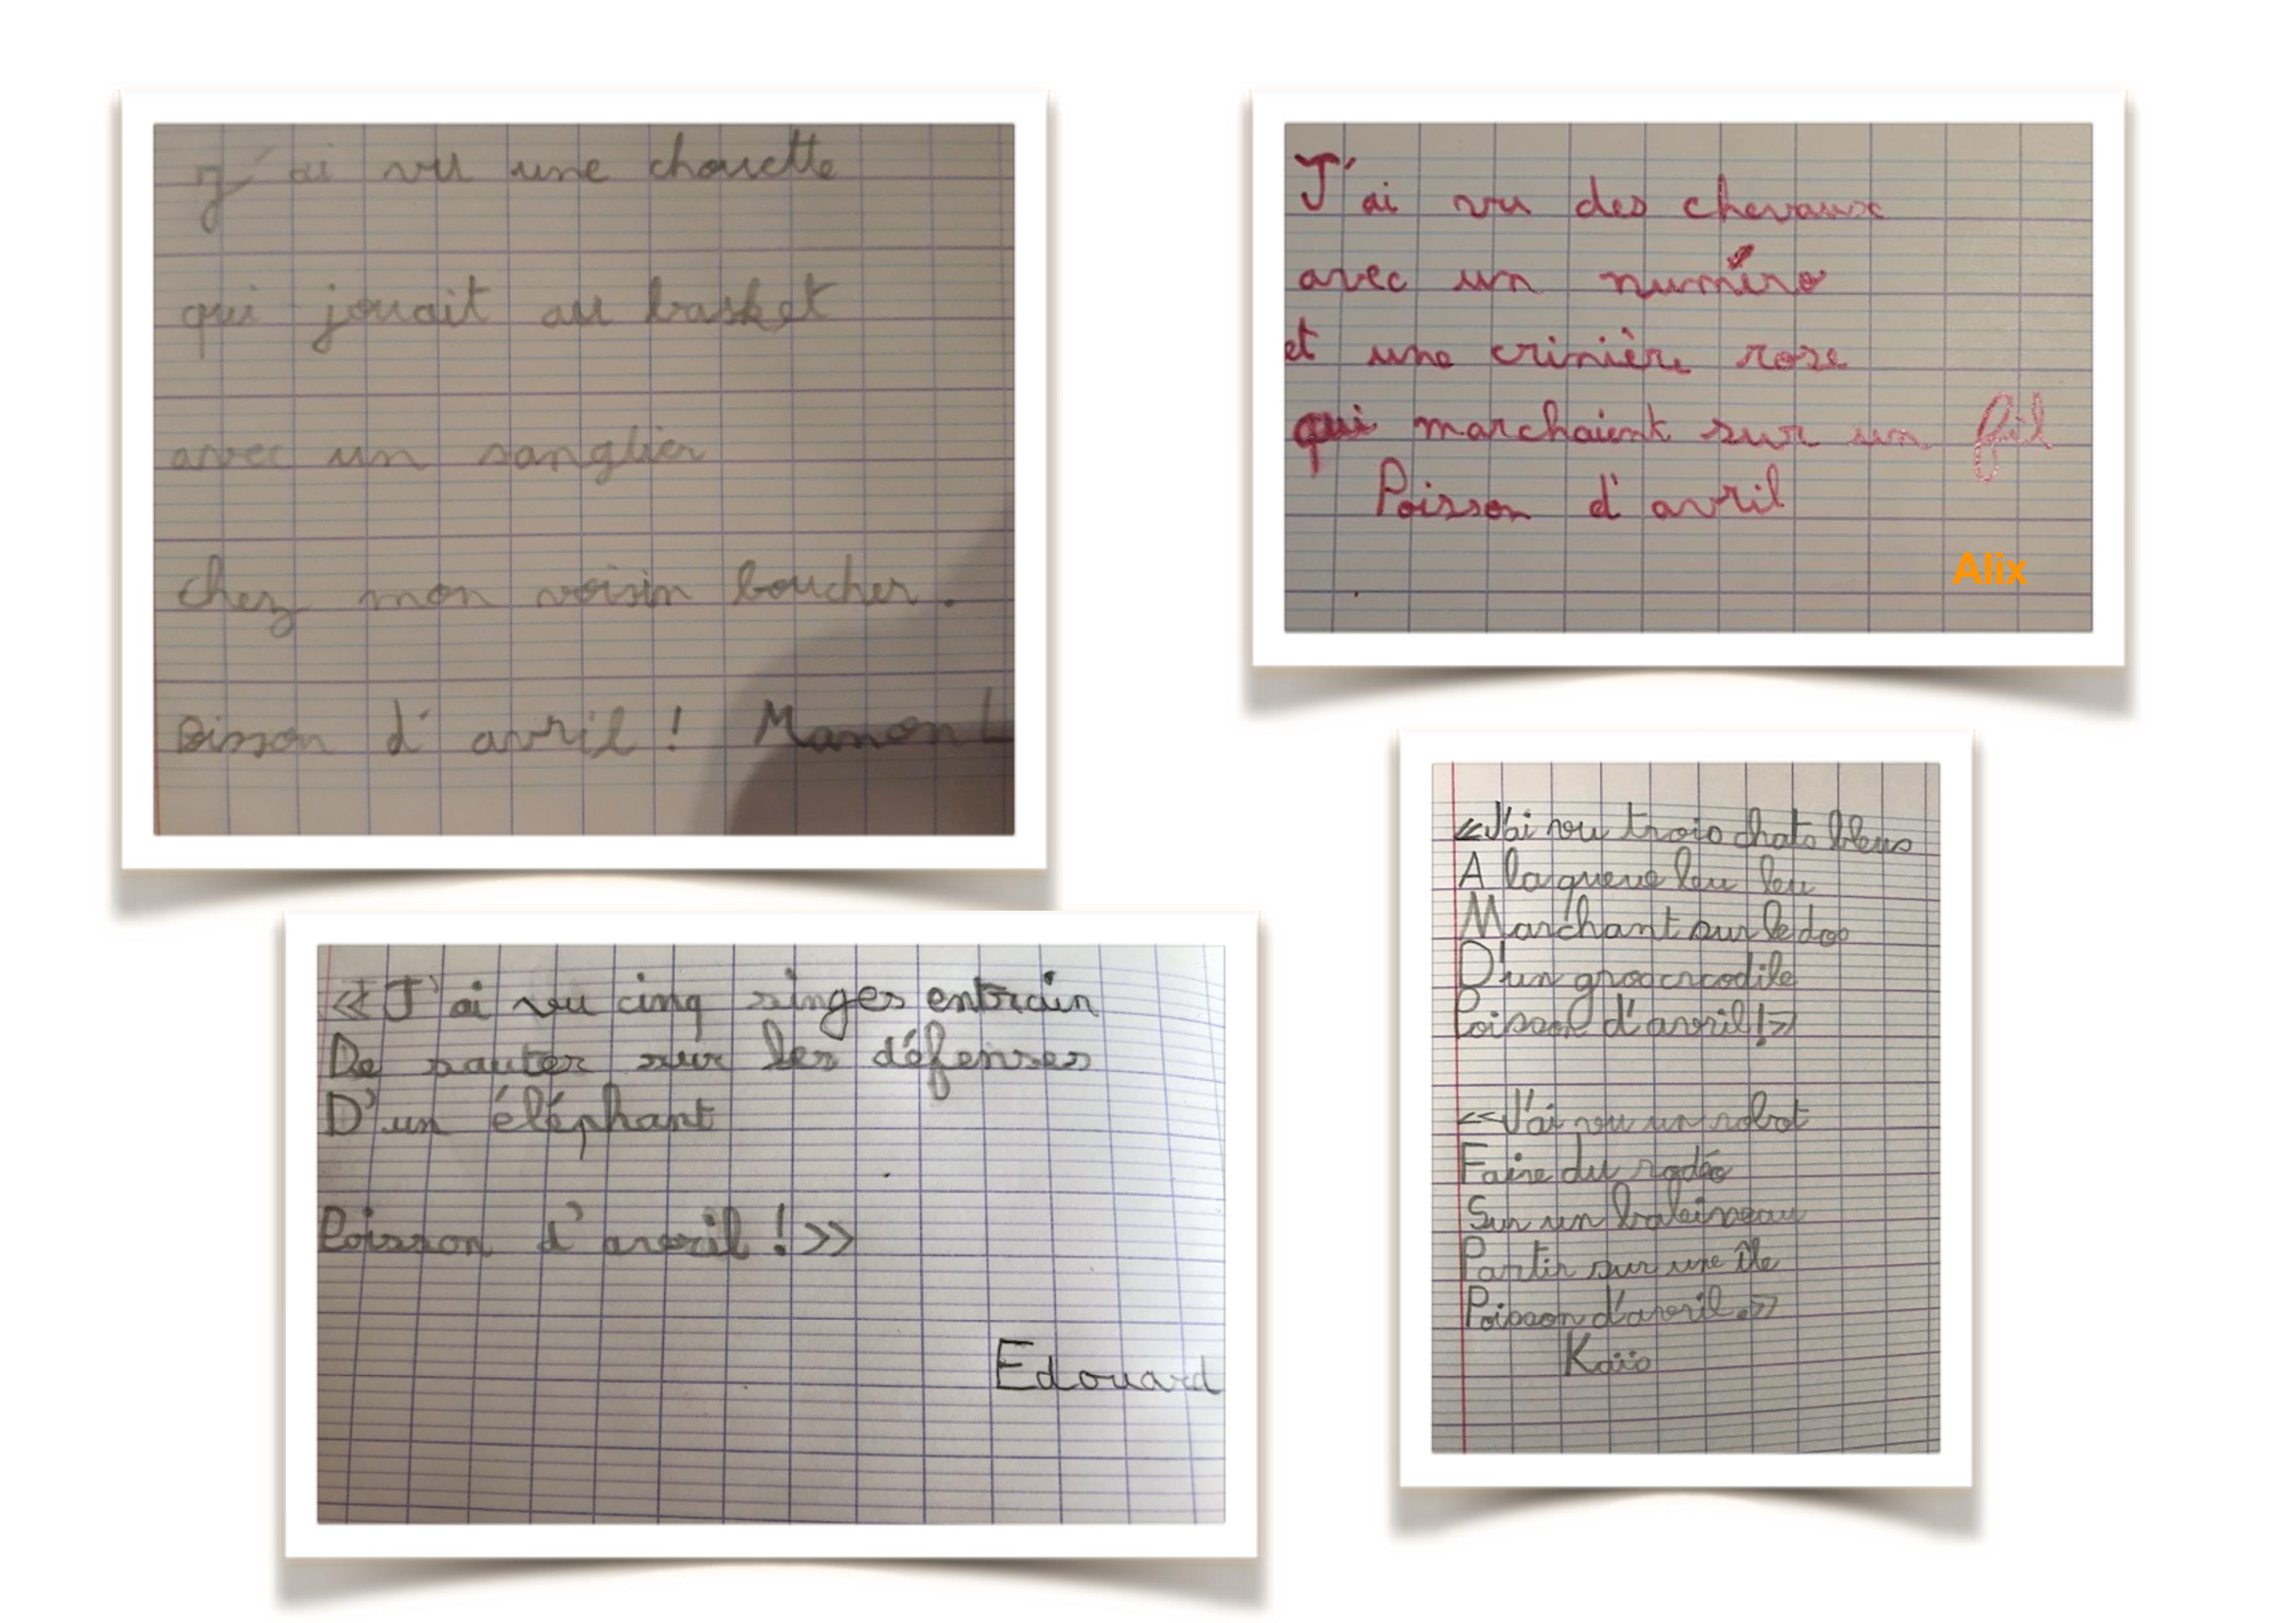 J'ai vu une chouette
qui jouait au basket
avec un sanglier
chez mon voisin boucher.
oisson d'avril ! Manon L
J'ai vu des chevaux
avec un numéro
et une crinière rose
qui marchaient sur un fil
Poisson d'avril
Alix
«J'ai vu cinq singes entrain
De sauter sur les défenses
D'un éléphant
Poisson d'avril !»
Edouard
«J'ai vu trois chats bleus
A la queue leu leu
Marchant sur le dos
D'un gros crcodile
Poisson d'avril !»
«J'ai vu un robot
Faire du rodéo
Sur un baleineau
Partir sur une île
Poisson d'avril.»
Kaïs